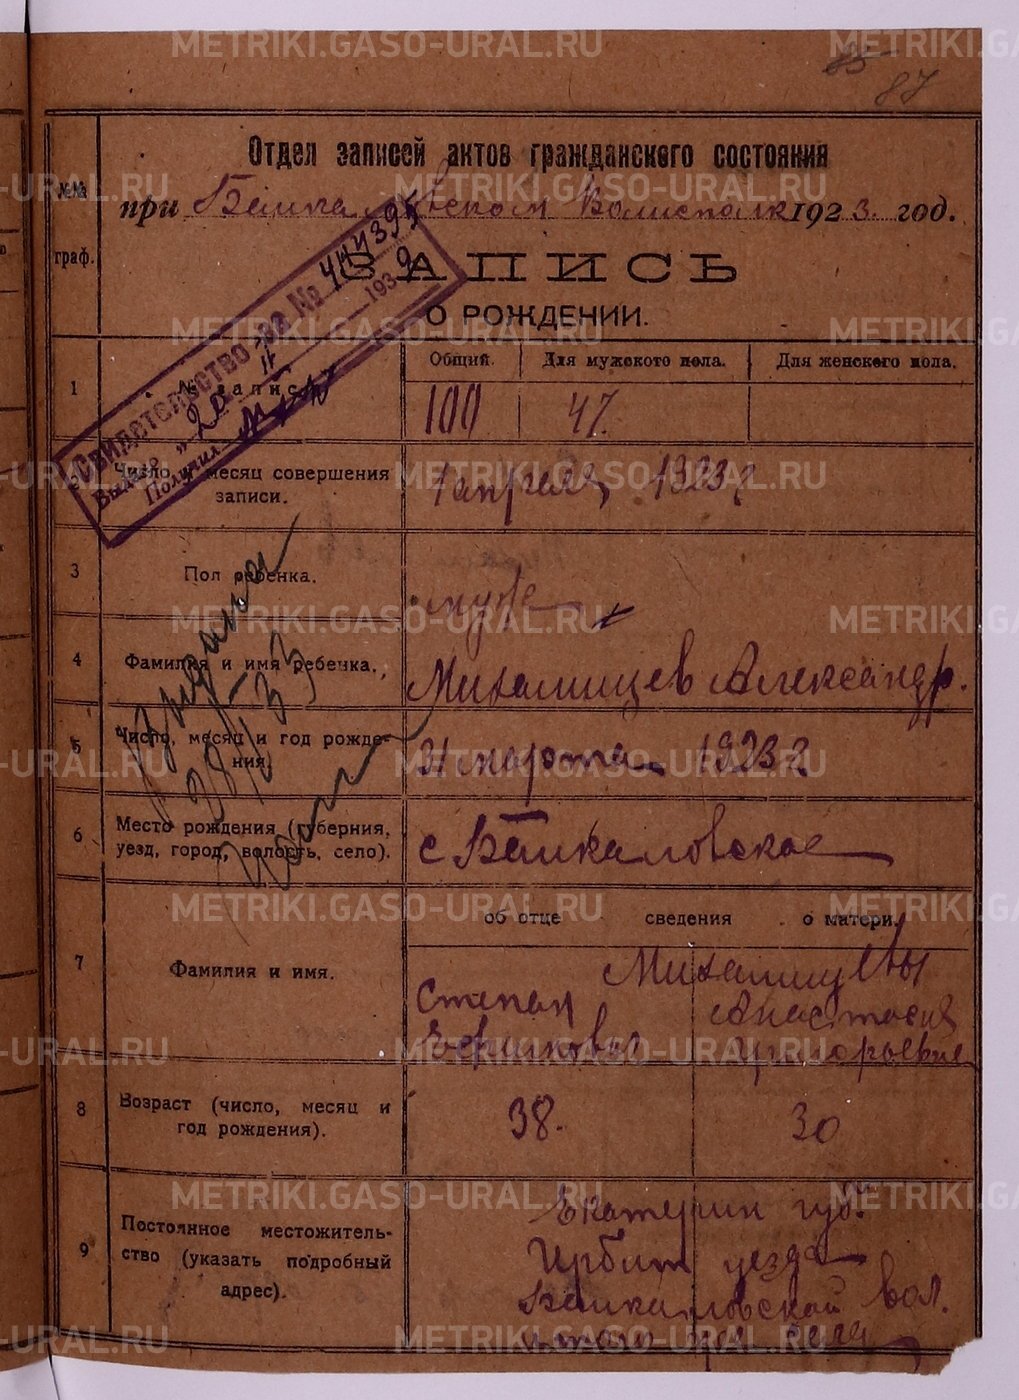 85
87
Отдел записей актов гражданского состояния
№№ граф.
при Байкаловском Волисполк 1923. год.
ЗАПИСЬ
О РОЖДЕНИИ.
Свидетельство за №
Выдано „20" 11 1939
Получил
1
№ записи
Общий.
Для мужского пола.
Для женского пола.
100
47.
2
Число, месяц совершения
записи.
1 апреля 1923 г
3
Пол ребенка.
муж
4
Фамилия и имя ребенка.
Михалищев Александр.
5
Число, месяц и год рожде-
ния.
31 марта 1923 г
6
Место рождения (губерния,
уезд, город, волость, село).
с Байкаловское
Выдана
об отце сведения о матери.
7
Фамилия и имя.
Михалищевы
Степан Анастасия
Ефимович Григорьевна
8
Возраст (число, месяц и
год рождения).
38.
30
9
Постоянное местожитель-
ство (указать подробный
адрес).
Екатерин губ.
Ирбит уезда
Байкаловской вол.
села
METRIKI.GASO-URAL.RU